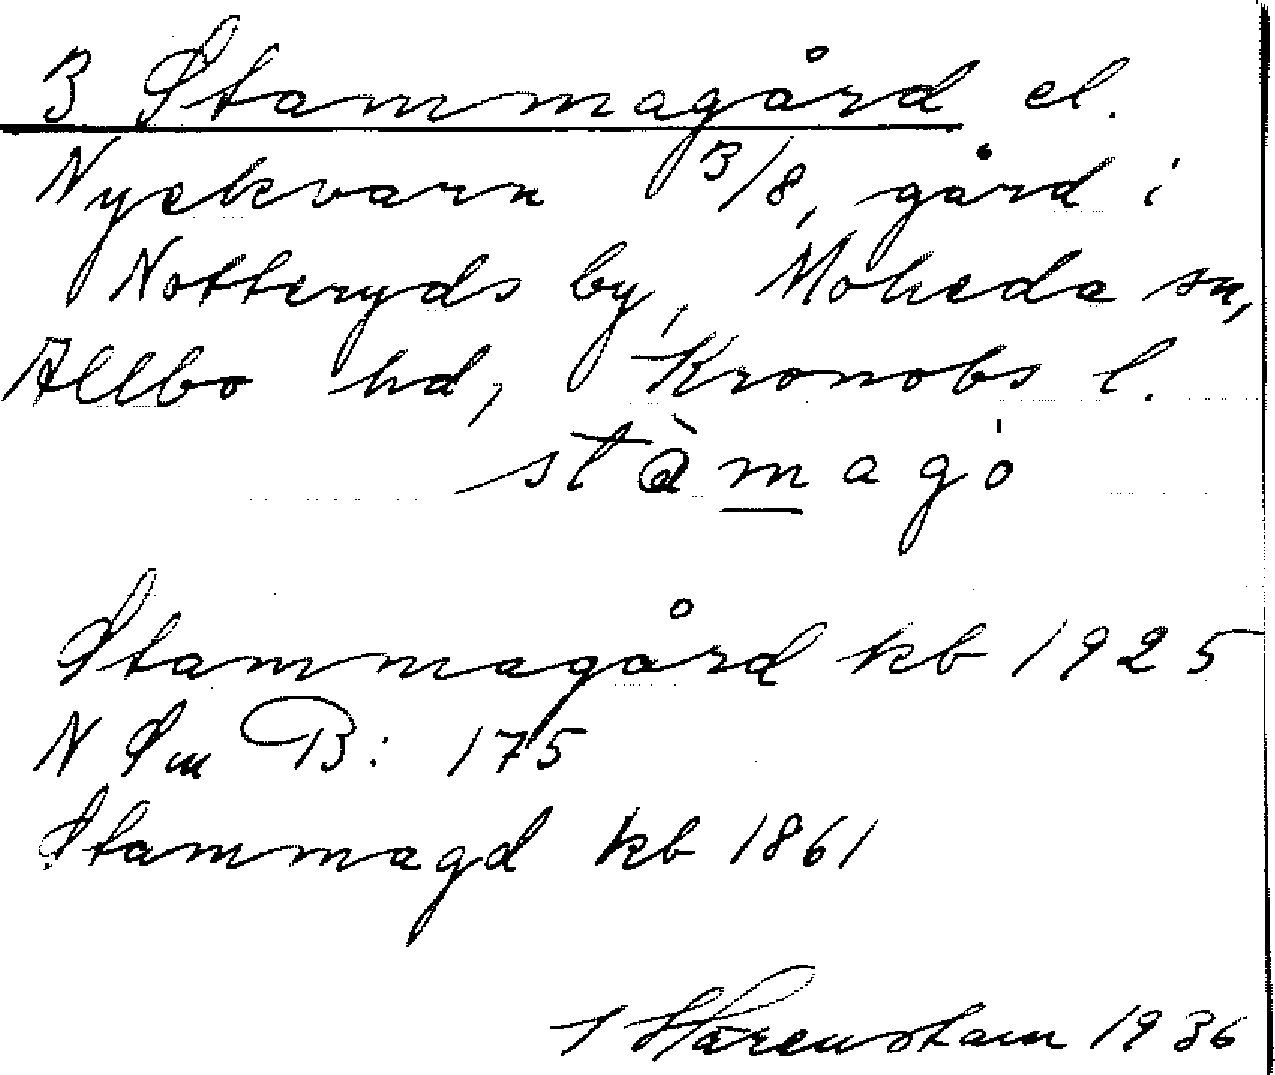 3 Stammagård el.
Nyckvarn 3/8, gård i
Notteryds by, Moheda sn,
Allbo hd, Kronobs l.
stàmagó
Stammagård kb 1925
N Sm B: 175
Stammagd kb 1861
Härenstam 1936